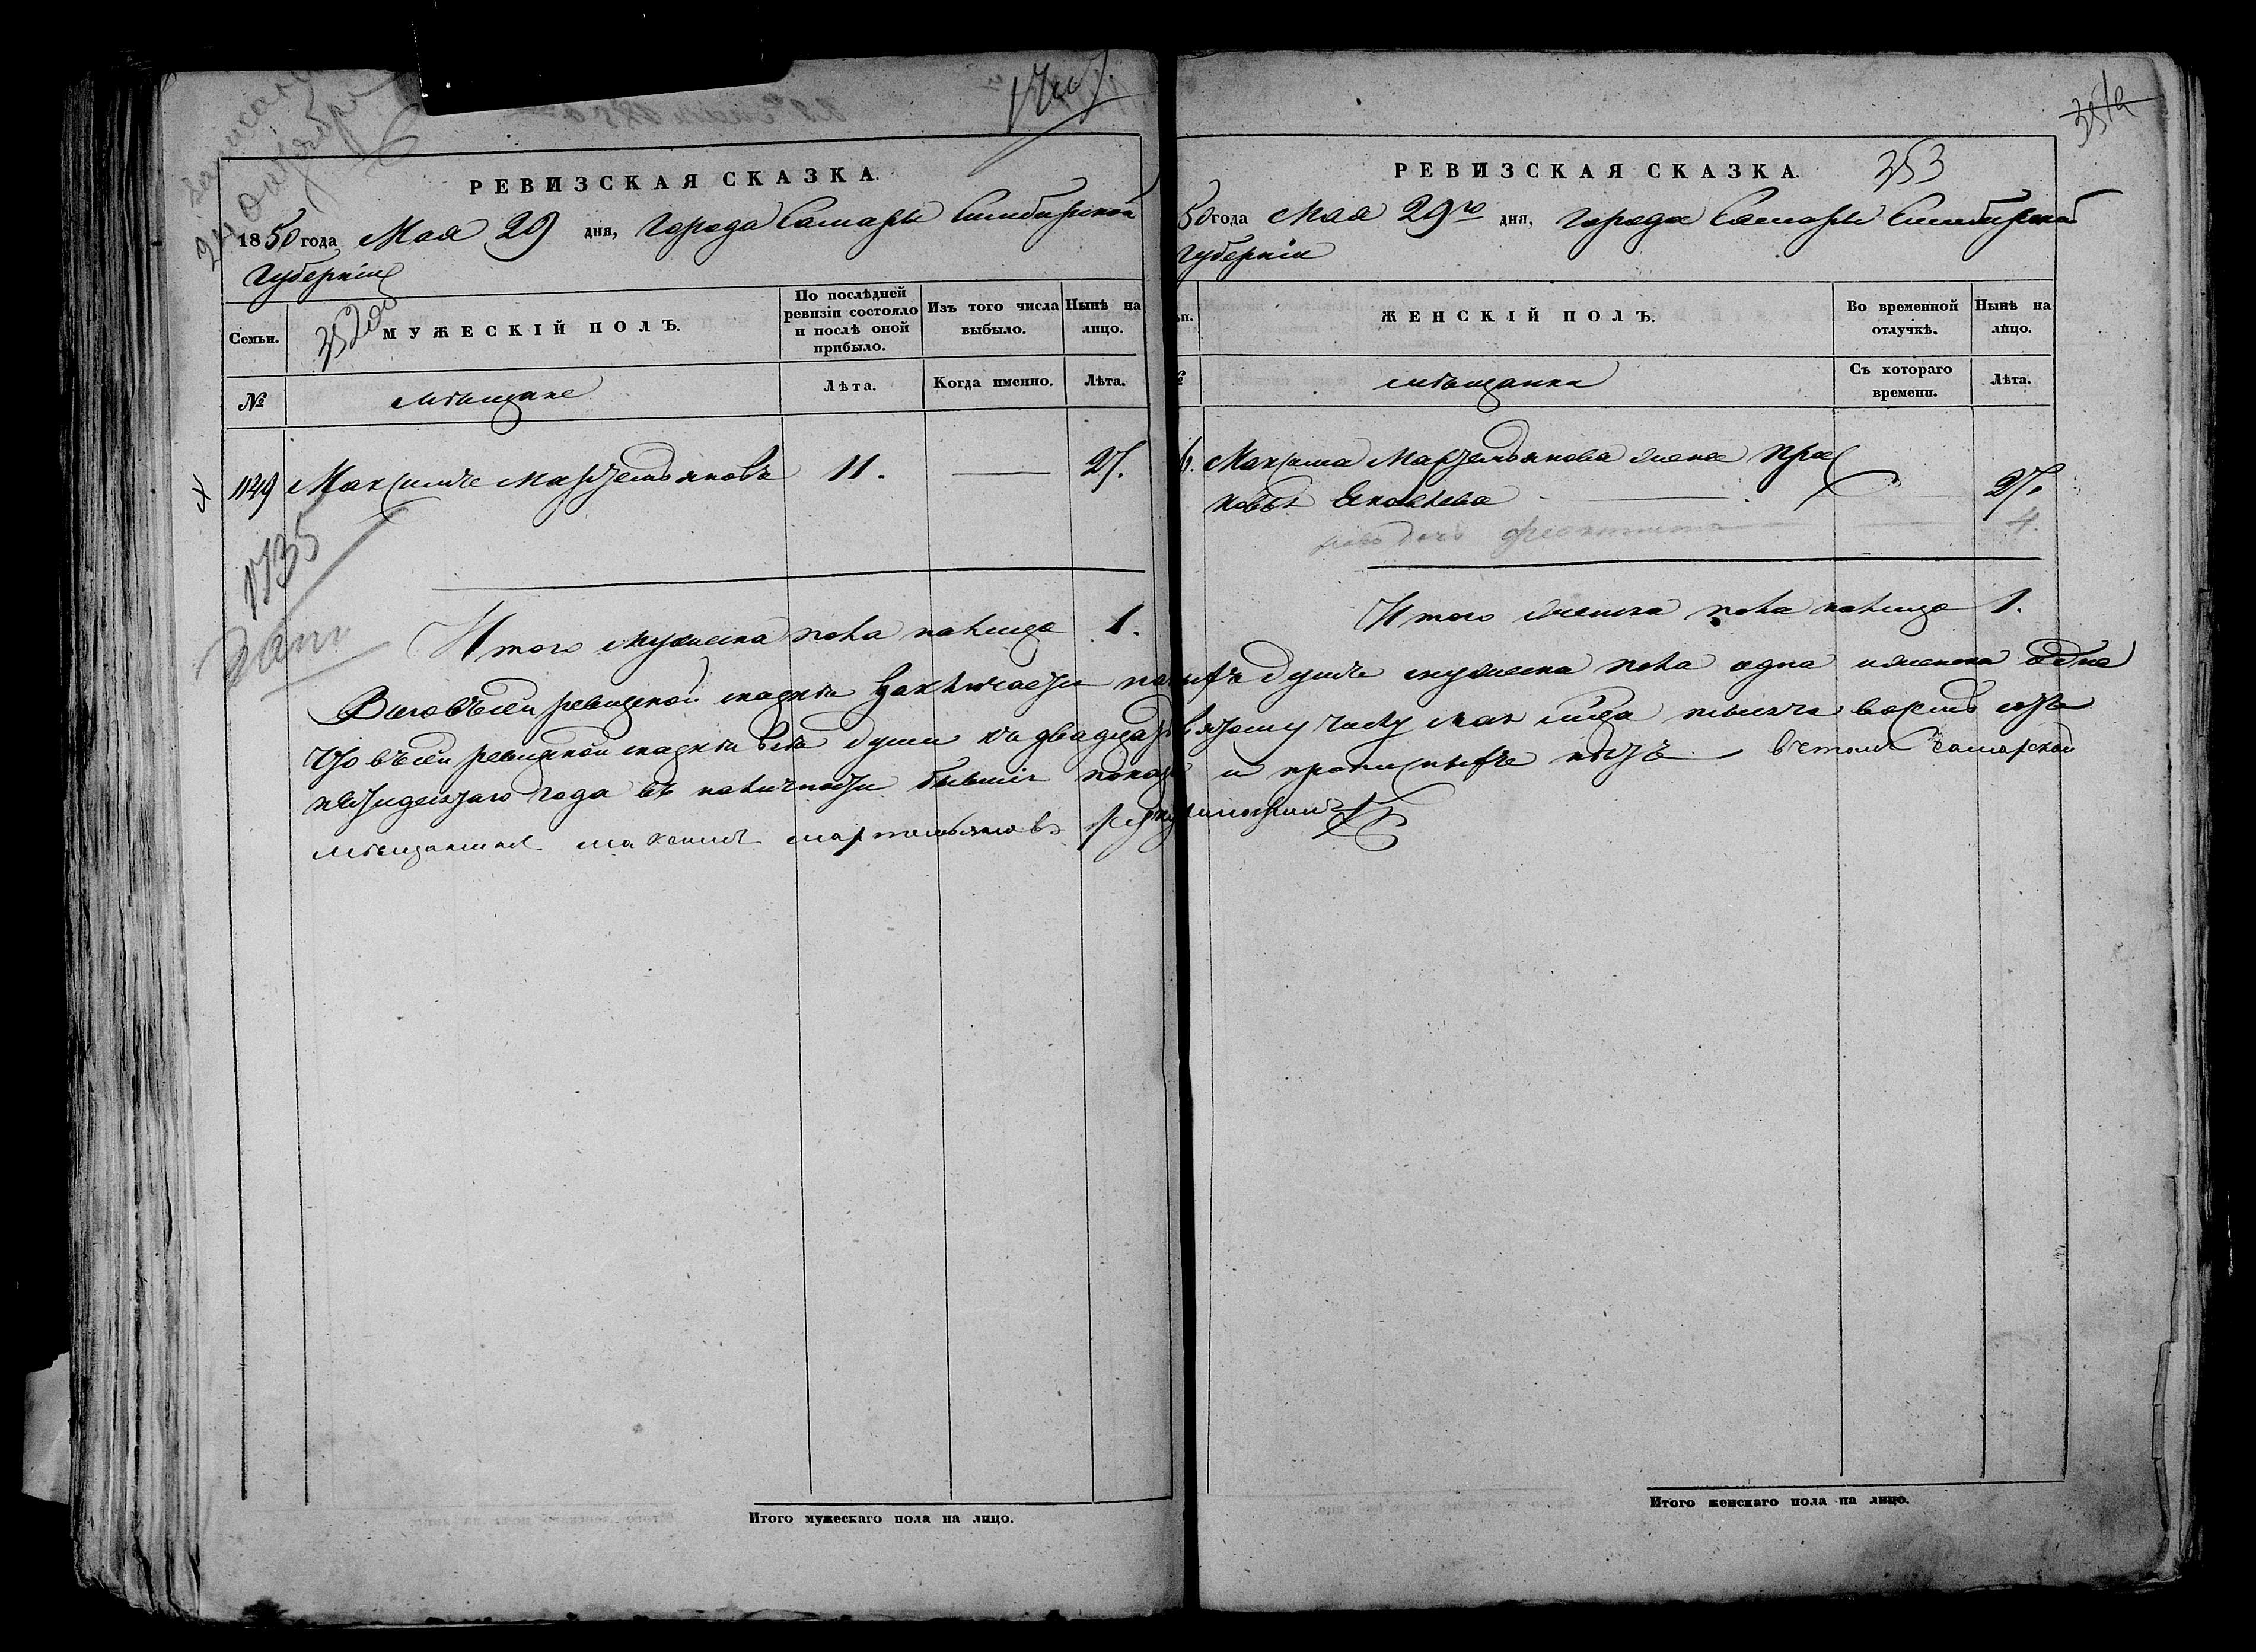 24 октября
РЕВИЗСКАЯ СКАЗКА.
1850 года Мая 29 дня, Города Самары Симбирской
Губернии
Семьи.
352 об
МУЖЕСКІЙ ПОЛЪ.
По послѣдней ревизіи состояло и послѣ оной прибыло.
Изъ того числа выбыло.
Нынѣ на лицо.
№
мѣщане
Лѣта.
Когда именно.
Лѣта.
1149 Максимъ Мартемьяновъ 11. — 27.
1735
Итого мужеска пола налицо 1.
Итого мужескаго пола на лицо.
351а
РЕВИЗСКАЯ СКАЗКА.
353
50 года Мая 29го дня, Города Самары Симбирской
Губерніи
ЖЕНСКІЙ ПОЛЪ.
Во временной отлучкѣ.
Нынѣ на лицо.
мѣщанки
Съ котораго времени.
Лѣта.
Максима Мартемьянова жена Прас
ковья Яковлева 27.
дочь 4.
Итого женска пола налицо 1.
Всего въ сей ревизской сказкѣ заключается душъ мужеска пола одна и женска одна
Что въ сей ревизской сказкѣ всѣ души къ двадцать числу Мая мѣсяца тысяча восемь сотъ
пятидесятаго года въ наличности бывшіе показаны и прописныхъ нѣтъ — въ томъ Самарской
мѣщанинъ максимъ мартемьяновъ
Итого женскаго пола на лицо.